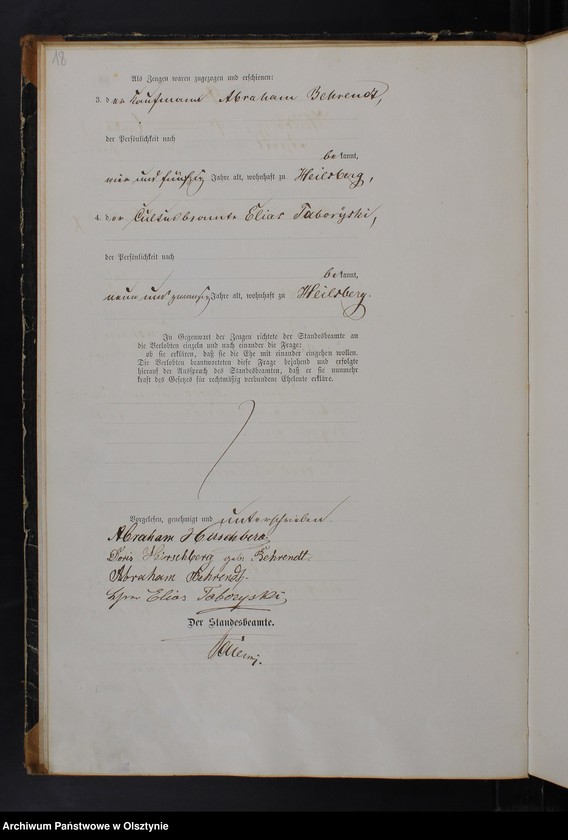 18
Als Zeugen waren zugezogen und erschienen:
3. der Kaufmann Abraham Behrendt,
der Persönlichkeit nach
bekannt,
vier und fünfzig Jahre alt, wohnhaft zu Heilsberg,
4. der Cultusbeamte Elias Taboryski,
der Persönlichkeit nach
bekannt,
neun und zwanzig Jahre alt, wohnhaft zu Heilsberg.
In Gegenwart der Zeugen richtete der Standesbeamte an
die Verlobten einzeln und nach einander die Frage:
ob sie erklären, daß sie die Ehe mit einander eingehen wollen.
Die Verlobten beantworteten diese Frage bejahend und erfolgte
hierauf der Ausspruch des Standesbeamten, daß er sie nunmehr
kraft des Gesetzes für rechtmäßig verbundene Eheleute erkläre.
Vorgelesen, genehmigt und unterschrieben
Abraham Hirschberg
Doris Hirschberg geb. Behrendt.
Abraham Behrendt.
Elias Taboryski
Der Standesbeamte.
Archiwum Państwowe w Olsztynie